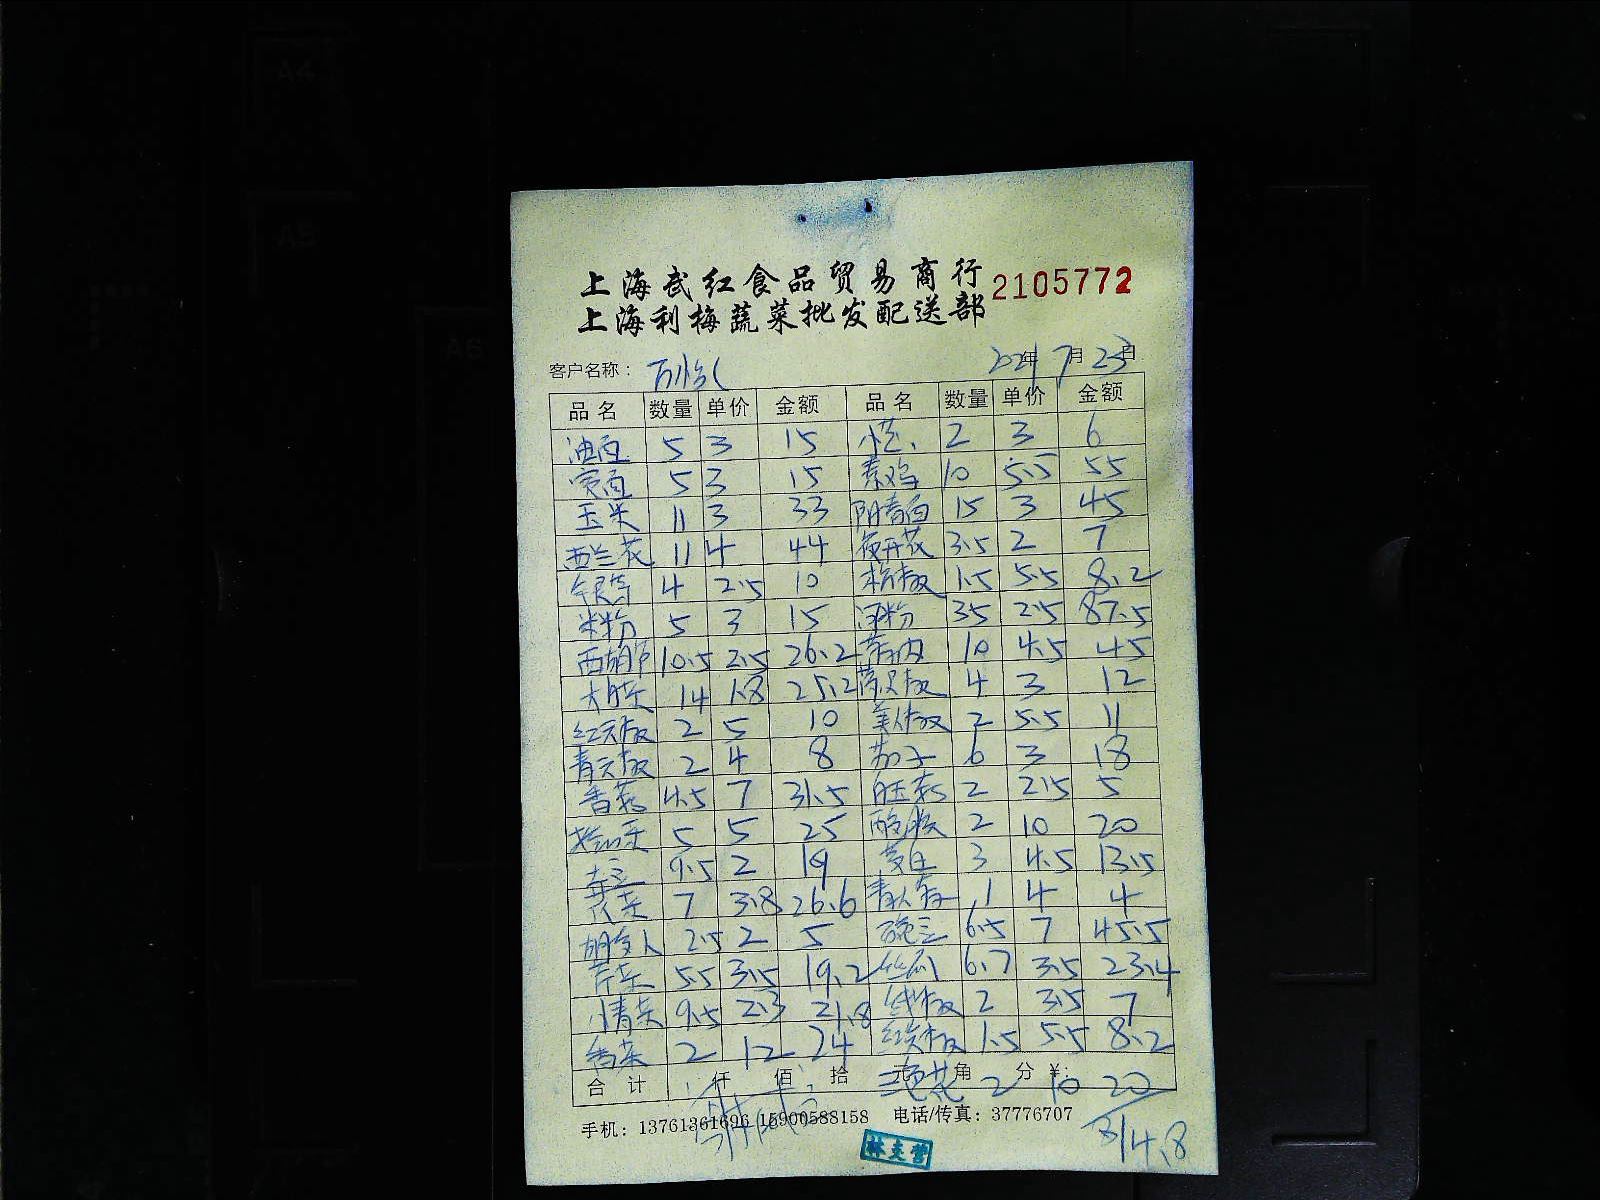 上海武红食品贸易商行 2105772
上海利梅蔬菜批发配送部
客户名称： 2021年7月23日
品名 数量 单价 金额 品名 数量 单价 金额
油面 5 3 15 2 3 6
宽面 5 3 15 素鸡 10 5.5 55
玉米 11 3 33 阴青白 15 3 45
西兰花 11 4 44 夜开花 3.5 2 7
银芽 4 2.5 10 杭椒 1.5 5.5 8.2
米粉 5 3 15 河粉 35 2.5 87.5
西胡芦 10.5 2.5 26.2 10 4.5 45
14 1.8 25.2 4 3 12
红尖椒 2 5 10 美人椒 2 5.5 11
青尖椒 2 4 8 茄子 6 3 18
香菇 4.5 7 31.5 2 2.5 5
5 5 25 2 10 20
9.5 2 19 3 4.5 13.5
花菜 7 3.8 26.6 1 4 4
胡萝卜 2.5 2 5 6.5 7 45.5
芹菜 5.5 3.5 19.2 丝瓜 6.7 3.5 23.4
小青菜 9.5 2.3 21.8 线椒 2 3.5 7
香菜 2 12 24 红尖椒 1.5 5.5 8.2
合计 仟 佰 拾 元 角 分 ¥: 2 10 20
手机：13761361696 15900588158 电话/传真：37776707